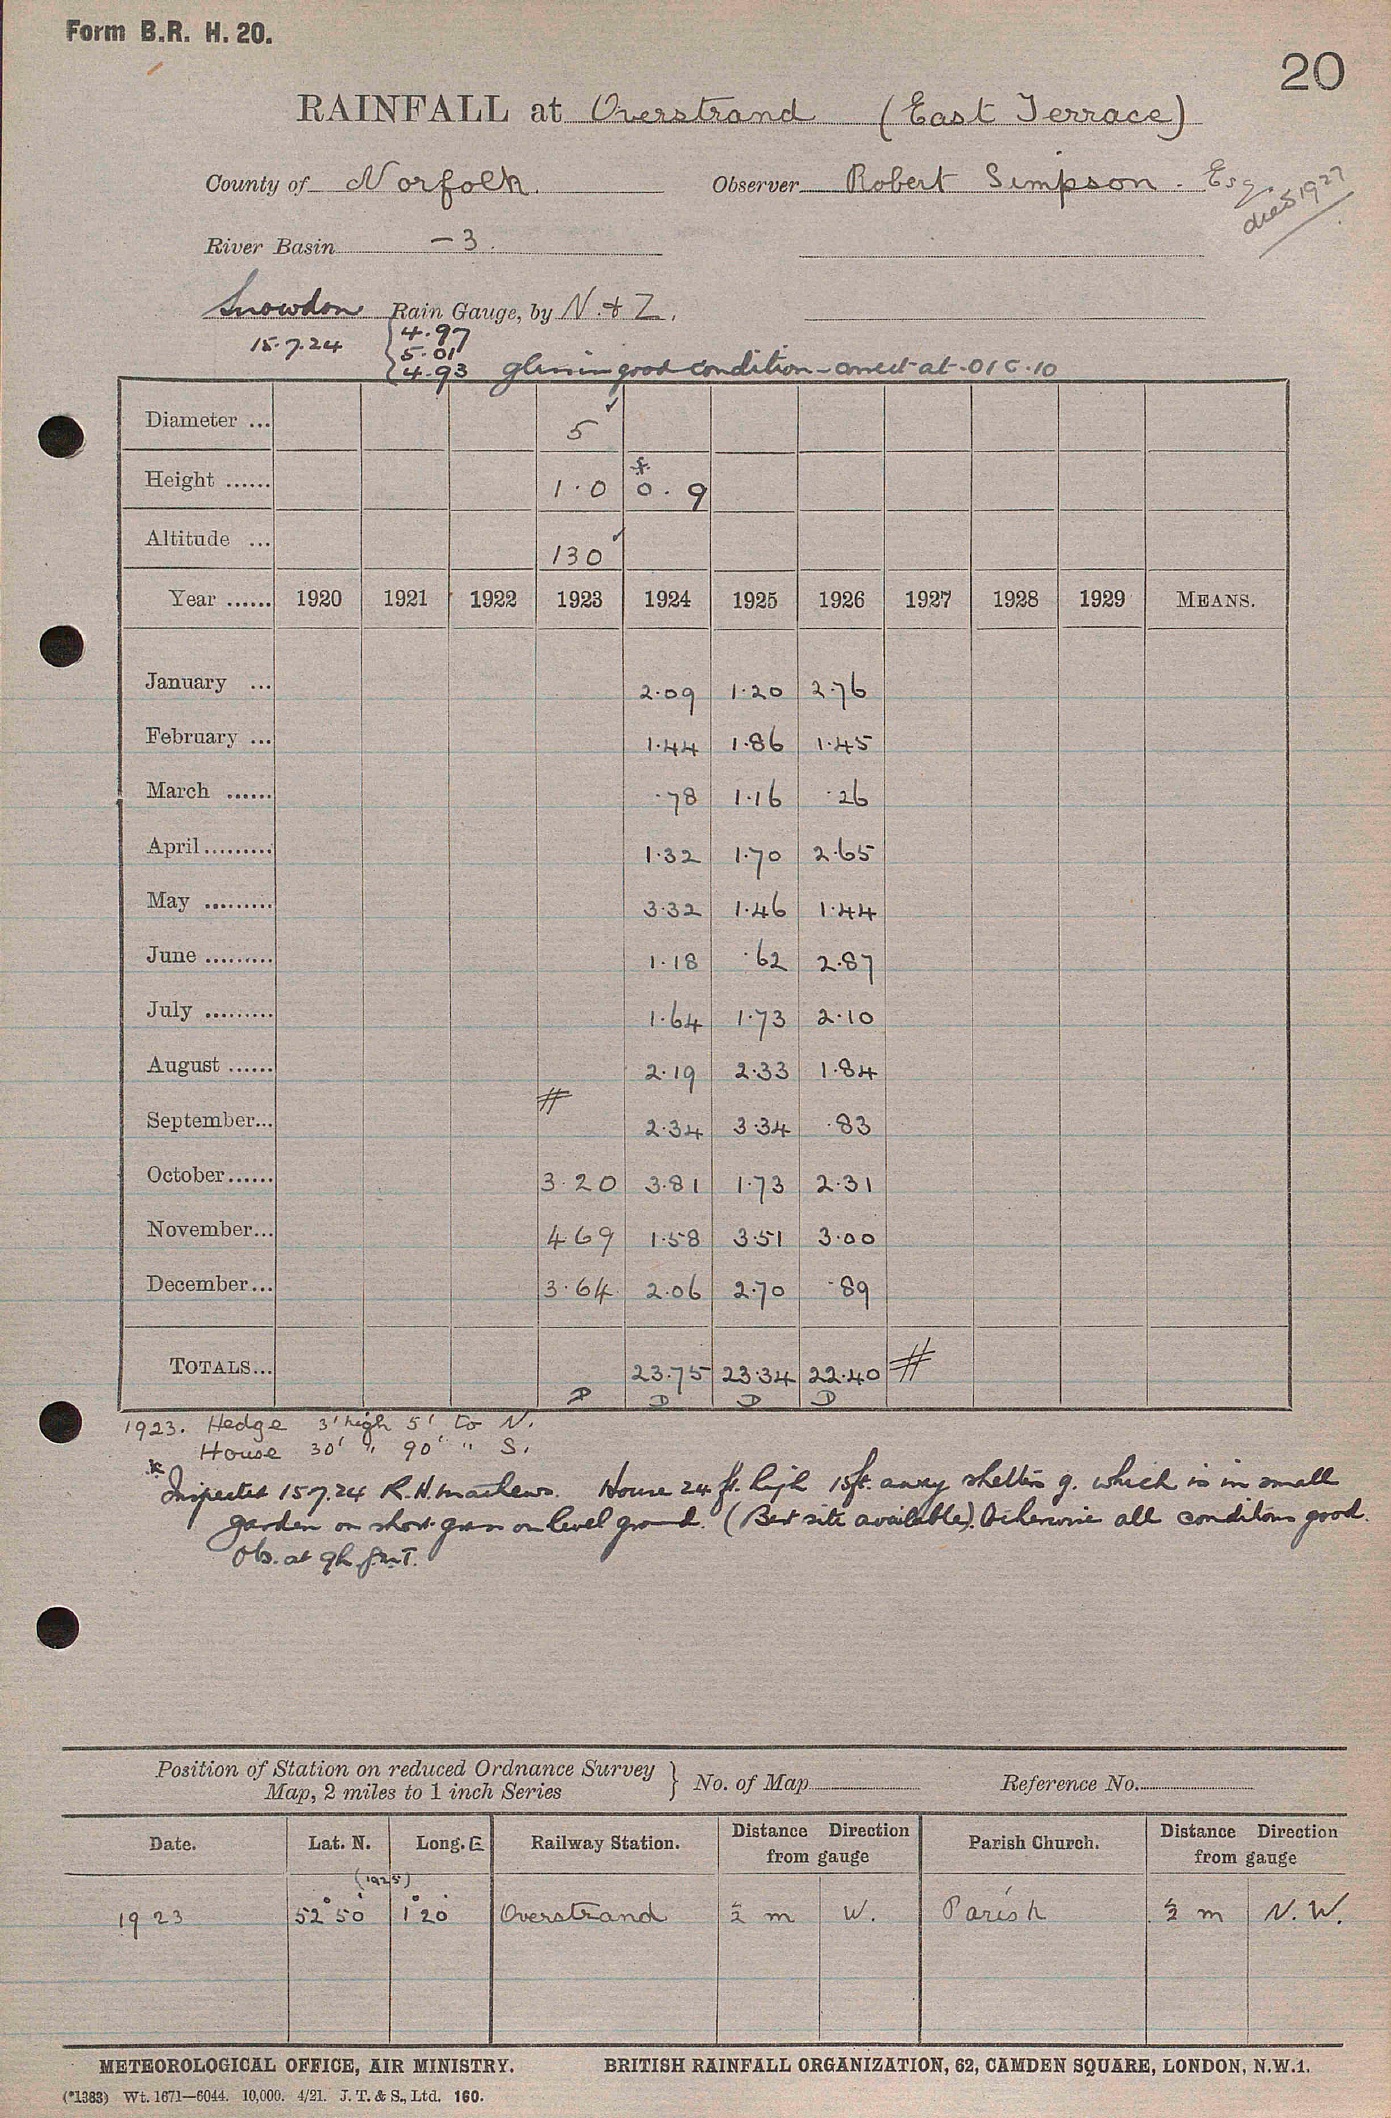 Form B.R. H. 20.
20
RAINFALL at Overstrand (East Terrace)
County of Norfolk. Observer Robert Simpson. Esq.
died 1927
River Basin —3.
Snowdon Rain Gauge, by N. & Z.
15.7.24 { 4.97
5.01
4.93 glass in good condition – correct at .01 &.10
Diameter ... 5 ✓
Height ...... 1.0 * 0.9
Altitude ... 130 ✓
Year ...... 1920 1921 1922 1923 1924 1925 1926 1927 1928 1929 MEANS.
January ... 2.09 1.20 2.76
February ... 1.44 1.86 1.45
March ...... .78 1.16 .26
April ......... 1.32 1.70 2.65
May ......... 3.32 1.46 1.44
June ......... 1.18 .62 2.87
July ......... 1.64 1.73 2.10
August ...... 2.19 2.33 1.84
September... 2.34 3.34 .83
October...... 3.20 3.81 1.73 2.31
November... 4.69 1.58 3.51 3.00
December... 3.64 2.06 2.70 .89
TOTALS... 23.75 23.34 22.40
D D D D
1923. Hedge 3' high 5' to N.
House 30' " 90' " S.
* Inspected 15.7.24 R.H. Mathews. House 24 ft. high 15ft. away shelters g. which is in small
garden on short grass on level ground. (Best site available). Otherwise all conditions good.
Obs. at 9h G.M.T.
Position of Station on reduced Ordnance Survey
Map, 2 miles to 1 inch Series } No. of Map Reference No.
Date. Lat. N. Long. E Railway Station. Distance Direction from gauge Parish Church. Distance Direction from gauge
(1925)
1923 52° 50' 1° 20' Overstrand ½ m W. Parish ½ m N.W.
METEOROLOGICAL OFFICE, AIR MINISTRY. BRITISH RAINFALL ORGANIZATION, 62, CAMDEN SQUARE, LONDON, N.W.1.
(*1383) Wt. 1671—6044. 10,000. 4/21. J. T. & S., Ltd. 160.